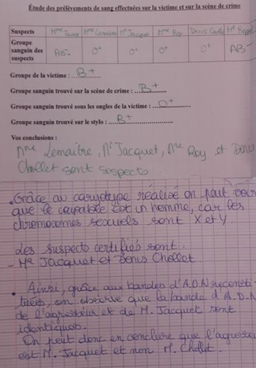 Étude des prélèvements de sang effectuées sur la victime et sur la scène de crime
Suspects Mme Lemaitre Mr Jacquet Mme Roy Denis Chollet
Groupe
sanguin des AB- O+ O+ O+ O+ AB-
suspects
Groupe de la victime : B+
Groupe sanguin trouvé sur la scène de crime : B+
Groupe sanguin trouvé sous les ongles de la victime : O+
Groupe sanguin trouvé sur le stylo : B+
Vos conclusions :
Mme Lemaitre, Mr Jacquet, Mme Roy et Denis
Chollet sont suspects
. Grâce au caryotype réalisé on peut voir
que le coupable est un homme, car les
chromosomes sexuels sont X et Y
Les suspects certifiés sont
- Mr Jacquet et Denis Chollet
. Ainsi, grâce aux bandes d'A.D.N
on observe que la bande d'A.D.N
de l'agresseur et de M. Jacquet sont
identiques.
On peut donc en conclure que l'agresseur
est M. Jacquet et non M. Chollet.